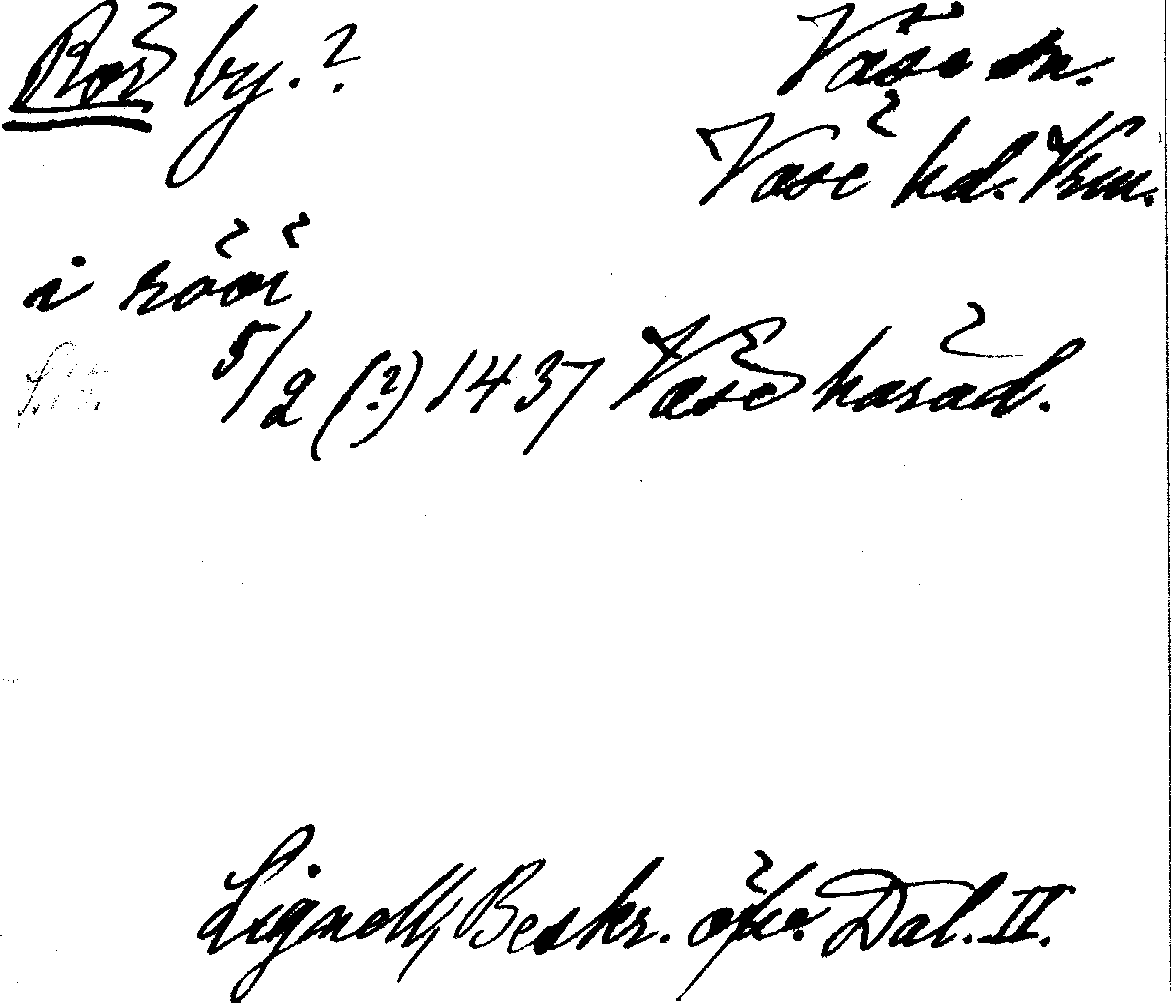 Rör by.? Väse sn.
Väse hd. Vrm.
i röör
5/2 (?) 1437 Väse härad.
Lignell, Beskr. öfv. Dal. II.